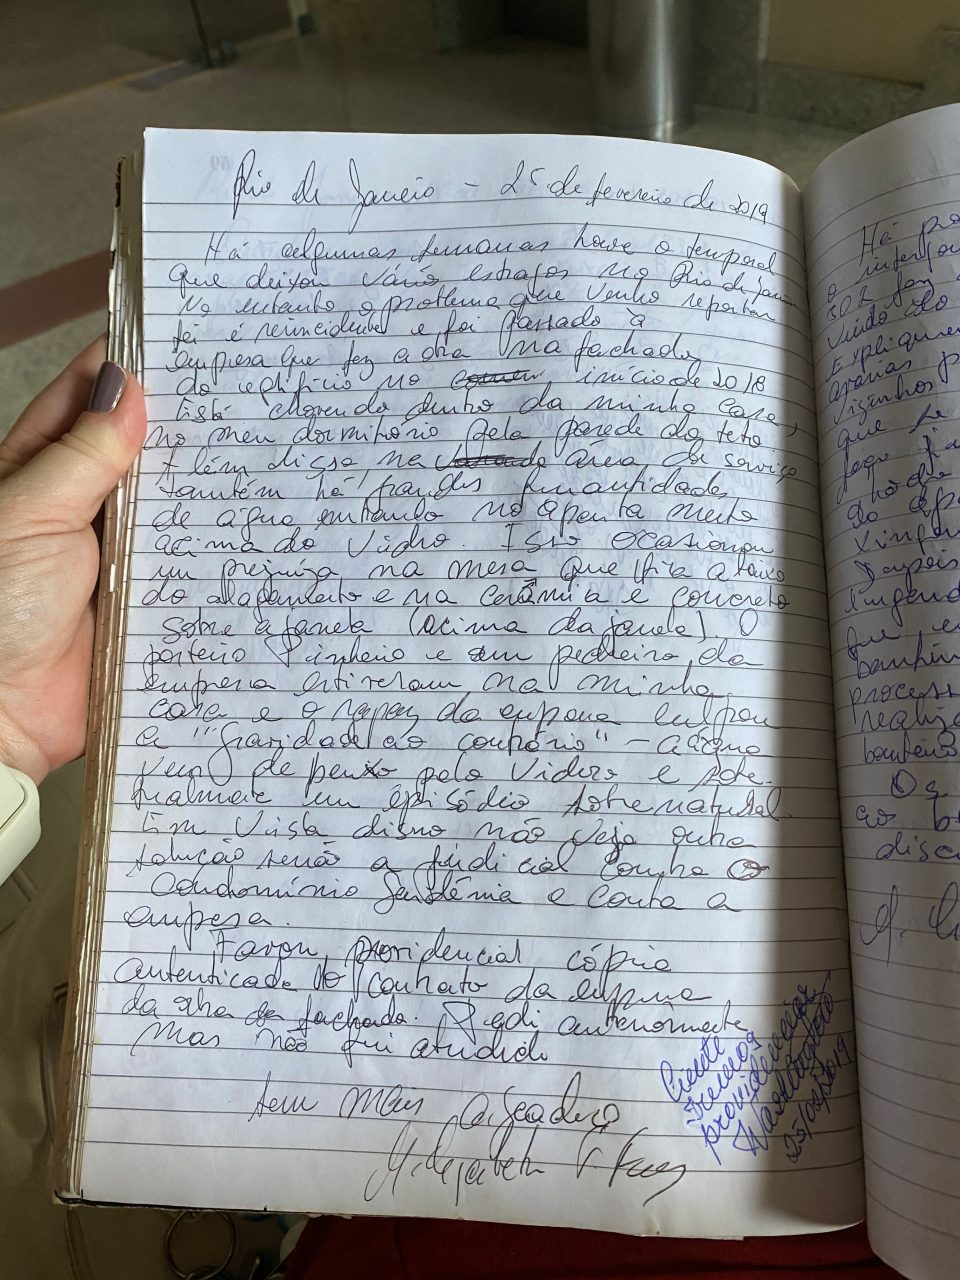 Rio de Janeiro - 25 de fevereiro de 2019
Há algumas semanas houve o temporal
que deixou vários estragos no Rio de Janeiro
No entanto o problema que venho reportar
é reincidente e foi passado à
empresa que fez a obra na fachada
do edifício no início de 2018
Está chovendo dentro da minha casa,
no meu dormitório pela parede do teto
Além disso, na área de serviço
também há grandes quantidades
de água entrando no apartamento
acima do vidro. Isso ocasionou
um prejuízo na mesa que fica abaixo
do alagamento e na cerâmica e concreto
sobre a janela (acima da janela). O
porteiro Pinheiro e um pedreiro da
empresa estiveram na minha
casa e o rapaz da empresa culpou
a "gravidade ao contrário" - a água
vem de baixo pelo vidro e
um episódio sobrenatural.
Em vista disso não vejo outra
solução senão a judicial contra o
Condomínio Gardênia e contra a
empresa.
Favor providenciar cópia
autenticada do contrato da empresa
da obra da fachada. Pedi anteriormente
mas não fui atendida
Sem mais agradeço
Ciente
Iremos
providenciar
Washington
25/02/2019
Há
o interfone
302
vindo do
Explique
avarias
vizinhos
que se
logo
do
Xingan
Depois
que
banheiro
process
realiza
banheiro
Os
ao
disc